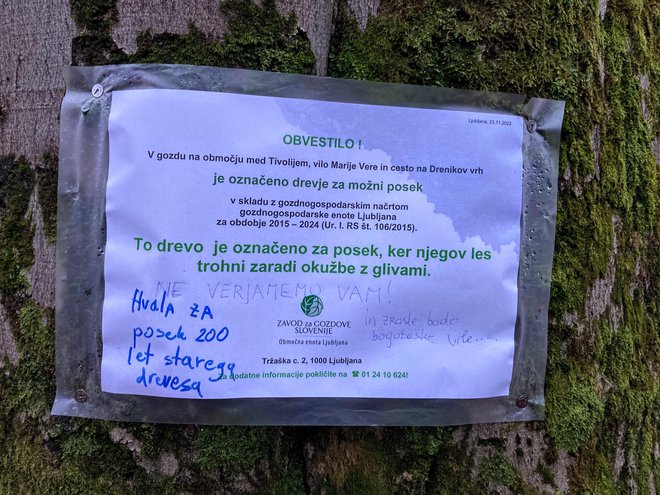 Ljubljana, 23.11.2022
OBVESTILO !
V gozdu na območju med Tivolijem, vilo Marije Vere in cesto na Drenikov vrh
je označeno drevje za možni posek
v skladu z gozdnogospodarskim načrtom
gozdnogospodarske enote Ljubljana
za obdobje 2015 – 2024 (Ur. l. RS št. 106/2015).
To drevo je označeno za posek, ker njegov les
trohni zaradi okužbe z glivami.
NE VERJAMEMO VAM!
HVALA ZA
posek 200
let starega
drevesa
ZAVOD za GOZDOVE
SLOVENIJE
Območna enota Ljubljana
in zrasle bodo
bogataške vile...
Tržaška c. 2, 1000 Ljubljana
Za dodatne informacije pokličite na ☎ 01 24 10 624!